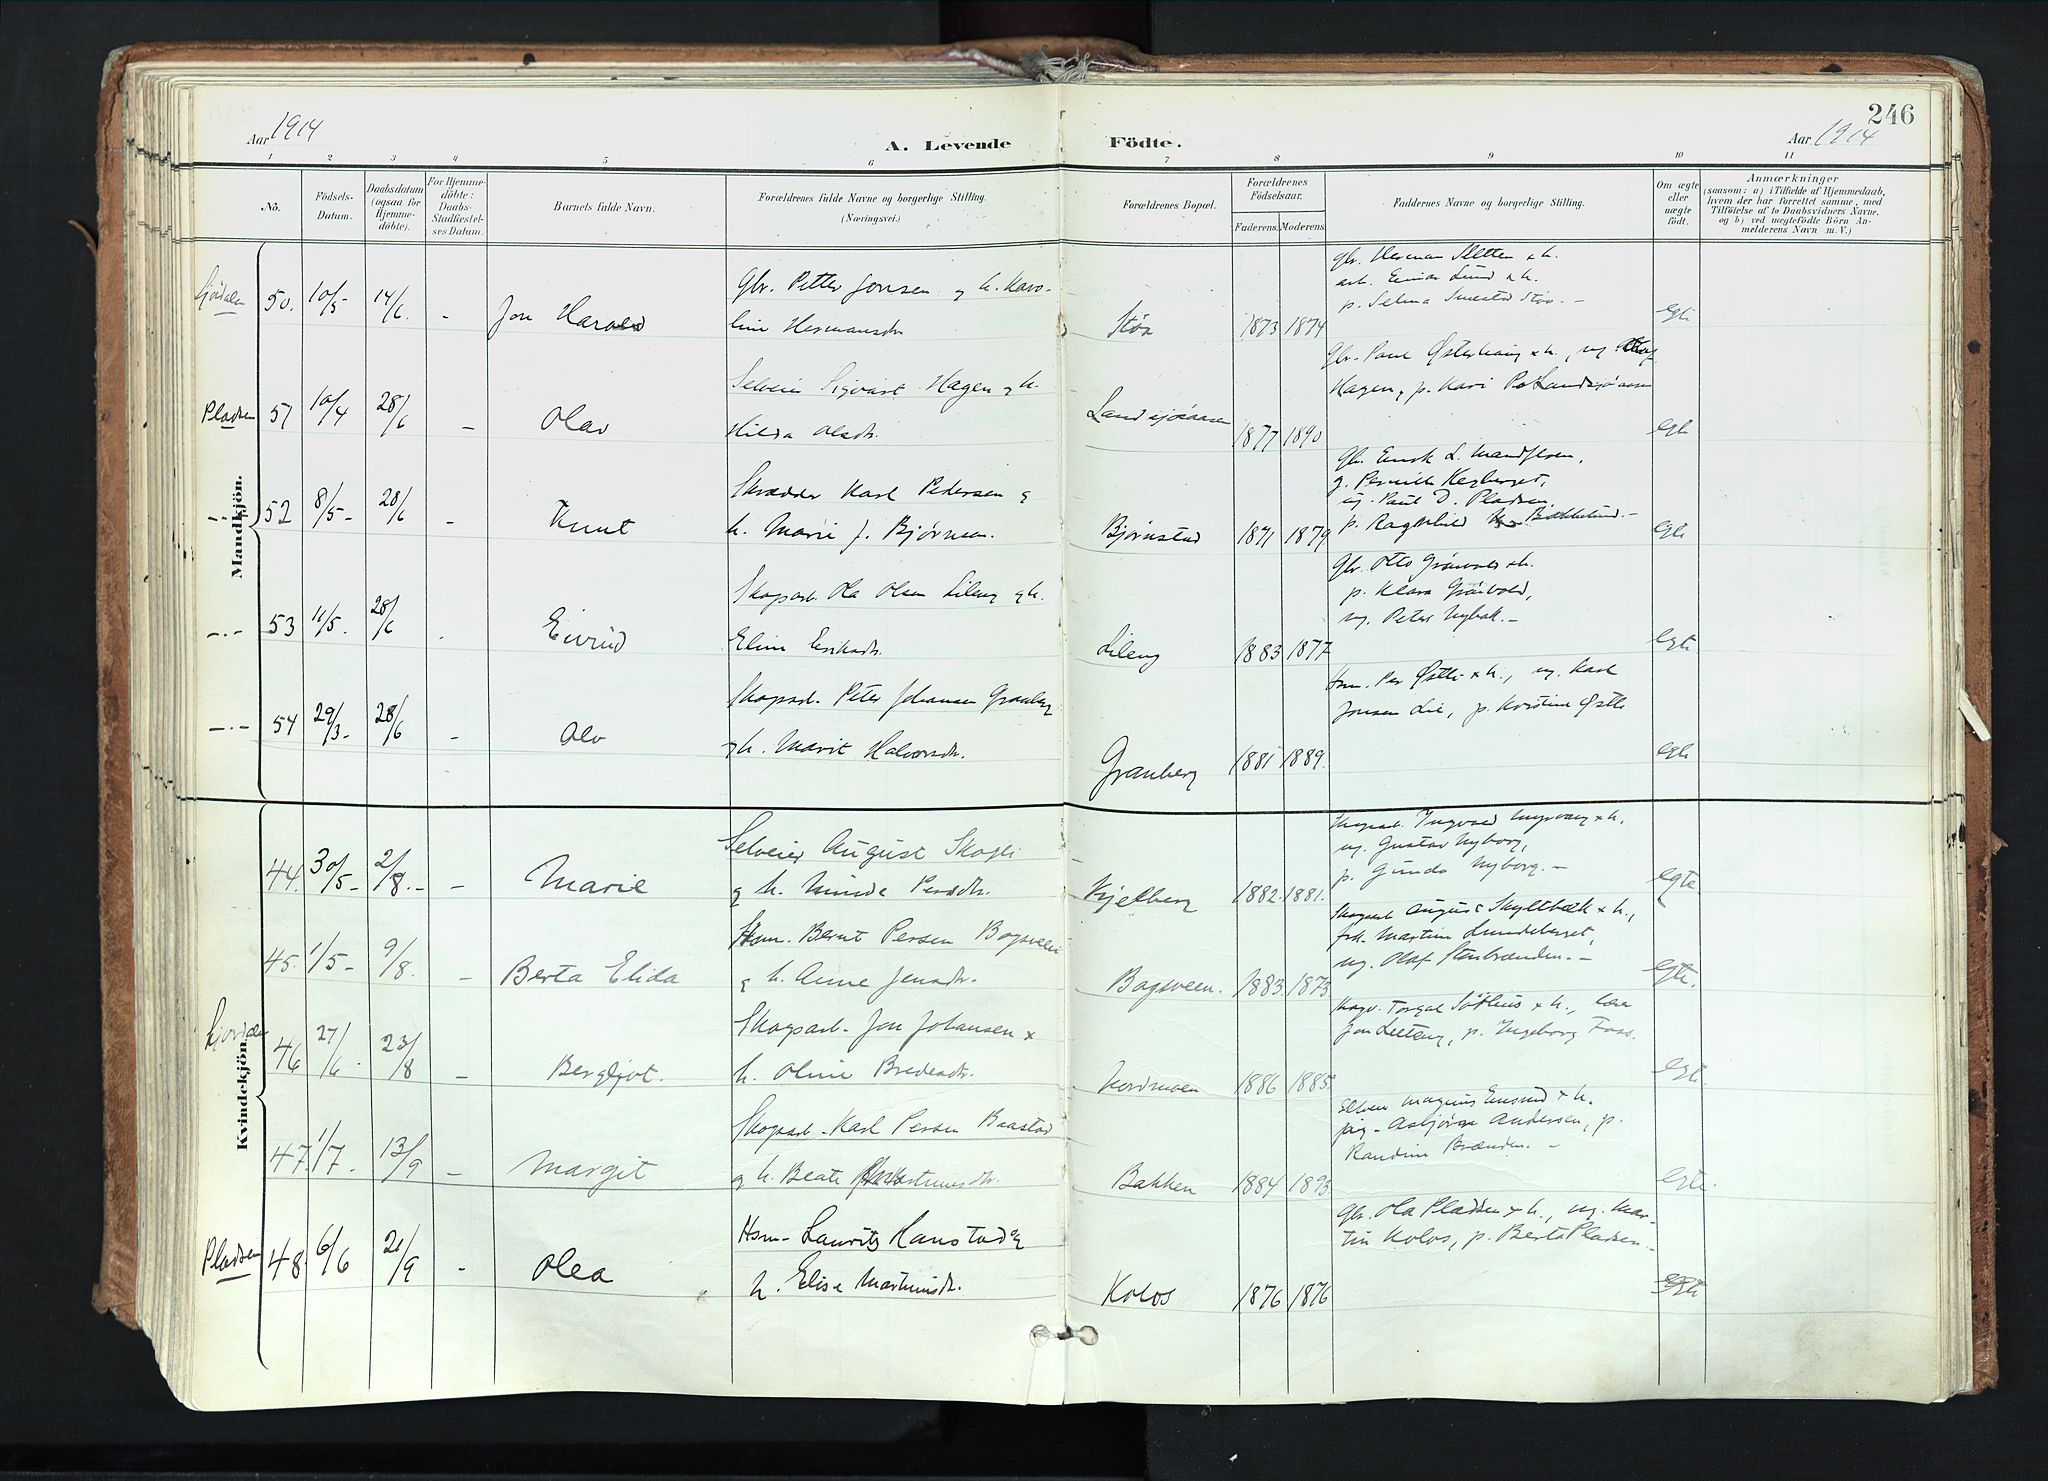 246
Aar 1914
A. Levende Födte.
Aar 1914
1 2 3 4 5 6 7 8 9 10 11
No.
Födsels-
Datum.
Daabsdatum
(ogsaa for
Hjemme-
döbte).
For Hjemme-
döbte:
Daabs-
Stadfæstel-
ses Datum.
Barnets fulde Navn.
Forældrenes fulde Navne og borgerlige Stilling.
(Næringsvei.)
Forældrenes Bopæl.
Forældrenes
Födselsaar.
Faderens. Moderens.
Faddernes Navne og borgerlige Stilling.
Om ægte
eller
uægte
födt.
Anmærkninger
(saasom: a) i Tilfælde af Hjemmedaab,
hvem der har forrettet samme, med
Tilföielse af to Daabsvidners Navne,
og b) ved uægtefödte Börn An-
melderens Navn m. V.)
Mandkjön.
50. 10/5 14/6. - Jon Harald
Gbr. Petter Jonsen og h. Karo-
line Hermansdr.
Støa 1873 1874
gbr. Herman Sletten x h.
arb. Einar Lund x h.
p. Selma Smestad Støa. -
egte
Pladsen 51 10/4 28/6 - Olav
Selveier Sigvart Hagen og h.
Hilda Olsdr.
Landsjøaasen 1877 1890
Gbr. Paul Østerhaug x h., ug. Olaf
Hagen, p. Kari P. Landsjøaasen
egte
-"- 52 8/5- 28/6 - Knut
Skrædder Karl Pedersen og
h. Marie J. Bjørnsen.
Bjørnstad 1871 1879
p. Ragnhild
ug. Paul D. Pladsen,
egte
-"- 53 11/5. 28/6 - Eivind
Skogsarb. Ola Olsen Lileng og h.
Eline Eriksdr.
Lileng 1883 1877
Gbr. Otto Grønvold x h.
p. Klara Grønvold,
ug. Peter Nybak. -
egte
-"- 54 29/3- 28/6 - Olav
Skogsarb. Peter Johansen Granberg
og h. Marit Halvorsdr.
Granberg 1881 1889.
Hsm. Per Østli x h., ug. Karl
Jonsen Lie, p. Kristine Østli
egte
Kvindekjön.
44. 30/5- 2/8.- - Marie
Selveier August Skogli
og h. Minda Persdr.
Kjelberg 1882. 1881.
Skogsarb. Ingvald x h.
ug. Gustav Nyborg,
p. Gunda Nyborg. -
egte
45. 1/5- 9/8. - Berta Elida
Hsm. Bernt Persen Bogsveen
og h. Anne Jensdr.
Bogsveen. 1883 1873
Skogsarb. August Skyltbæk x h.,
frk. Martine Lundeberget,
ug. Olaf Stenbrænden. -
egte.
46 27/6. 23/8 - Bergljot.
Skogsarb. Jon Johansen x
h. Oline Bredesdr.
Nordmoen 1886 1885
p. Ingeborg Foss.
egte.
47. 1/7. 13/9 - Margit
Skogsarb. Karl Persen Baastad
og h. Beate Martinusdr.
Bakken 1884 1893
pig. Asbjørg Andersen, p.
Randine Brænden. -
egte.
Pladsen 48. 6/6 21/9 - Olea
Hsm. Laurits Hanstad og
h. Elise Martinusdr.
Kolos 1876 1876
gbr. Ola Pladsen x h., ug. Mar-
tin Kolos, p. Berta Pladsen -
egte